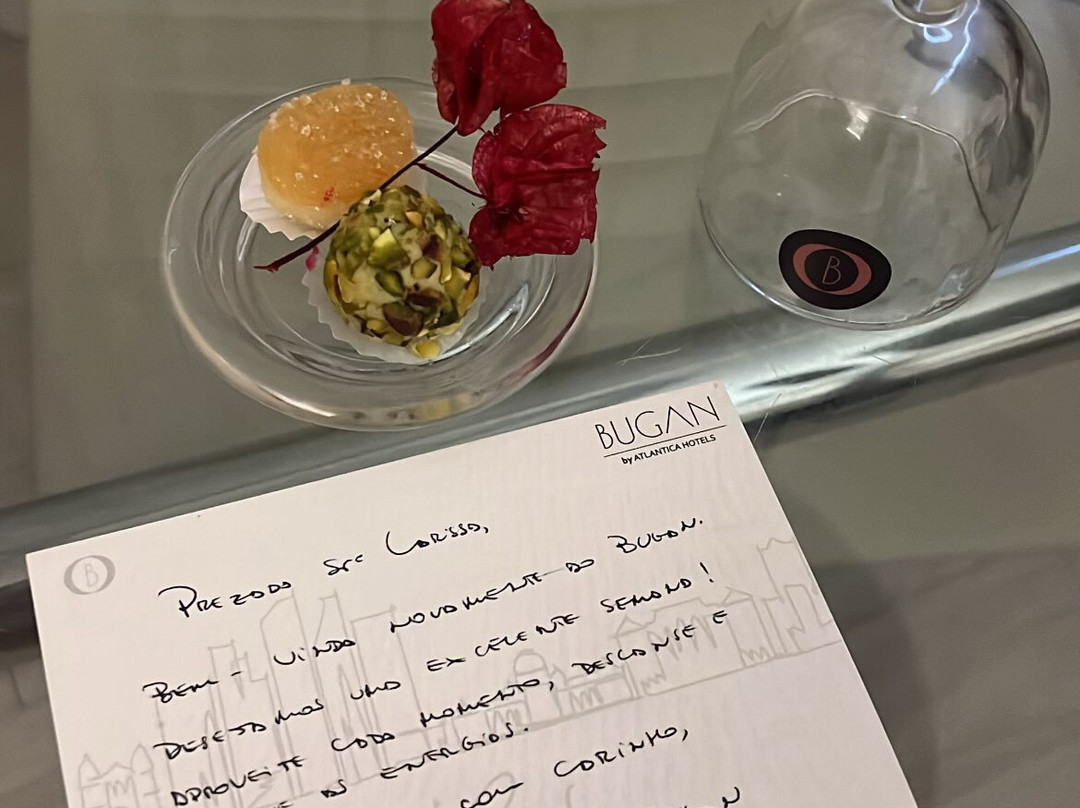 B
BUGAN
by ATLANTICA HOTELS
B
PREZADA Sra LARISSA,
BEM-VINDA NOVAMENTE AO BUGAN.
DESEJAMOS UMA EXCELENTE SEMANA!
APROVEITE CADA MOMENTO, DESCANSE E
AS ENERGIAS.
COM CARINHO,